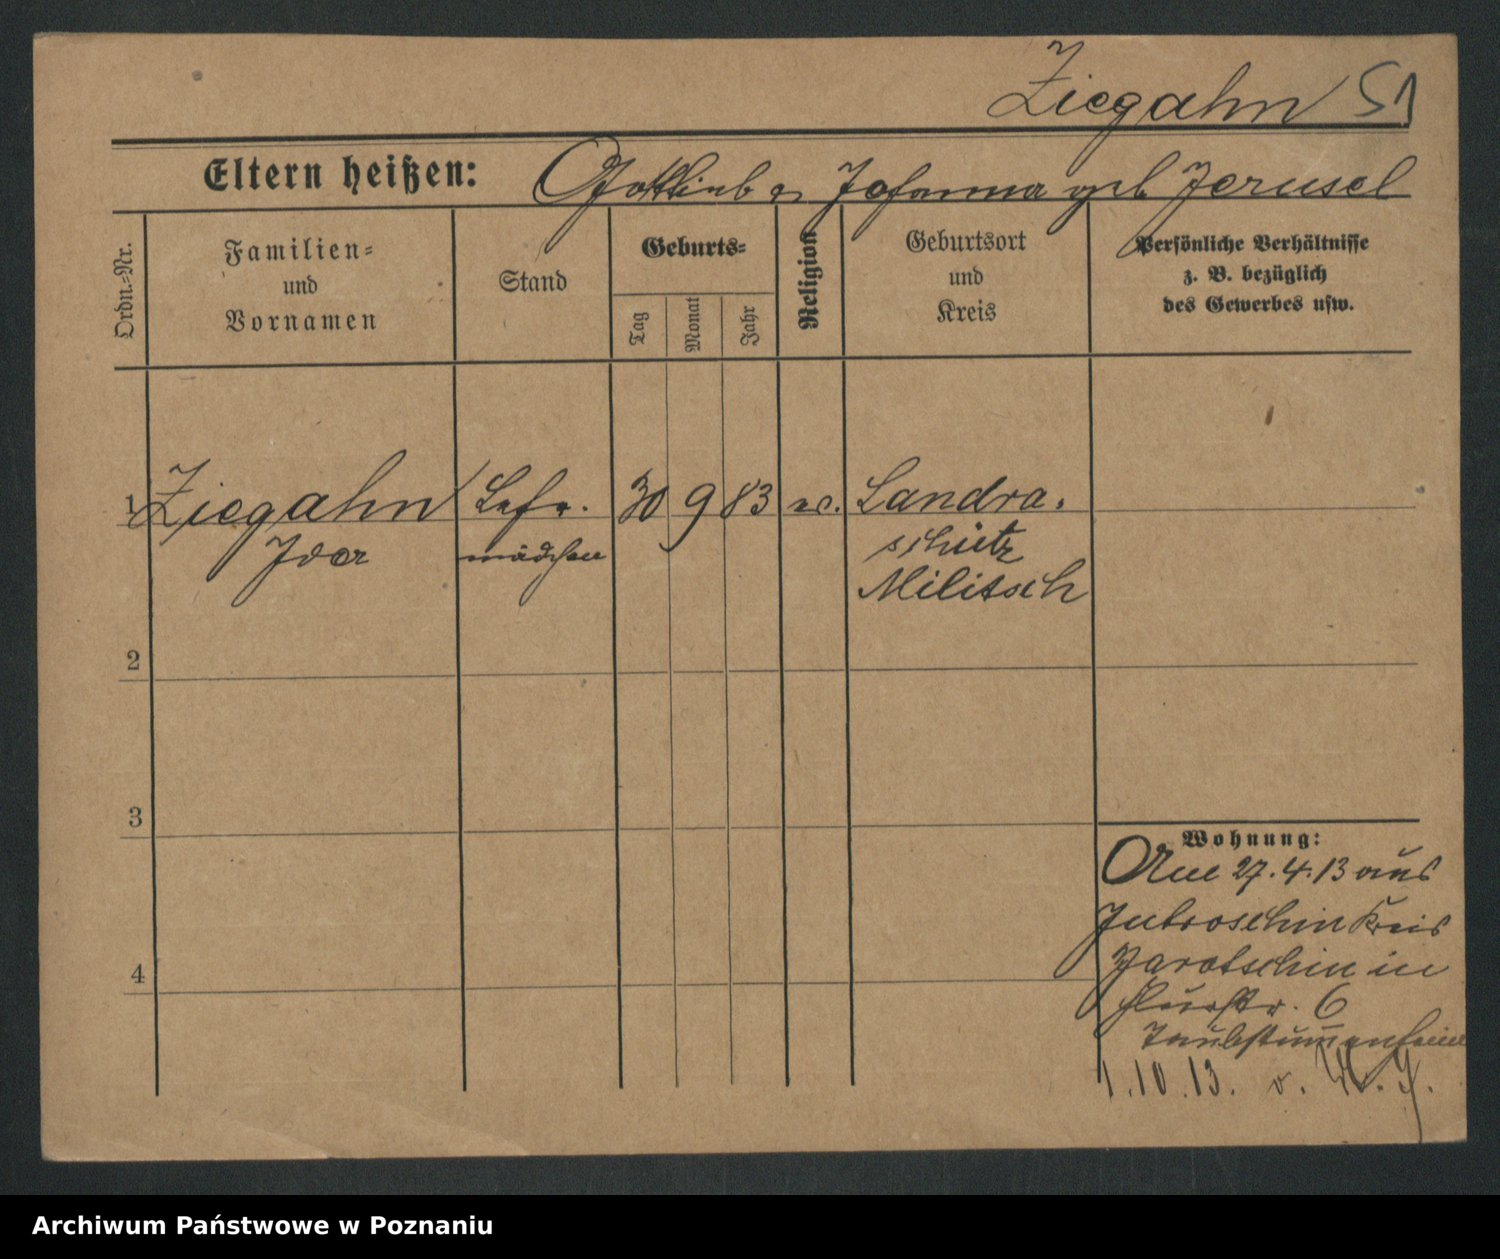 Ziegahn 51
Eltern heißen: Gottlieb u Johanna geb Jerusel
Ordn.-Nr.
Familien-
und
Vornamen
Stand
Geburts-
Tag
Monat
Jahr
Religion
Geburtsort
und
Kreis
Persönliche Verhältnisse
z. B. bezüglich
des Gewerbes usw.
1 Ziegahn Lehr. 30 9 83 ev. Landra-
Ida mädchen schütz
Militsch
2
3
4
Wohnung:
Am 27.4.13 aus
Jutroschin Kreis
Jarotschin in
6
Taubstummenheim
1.10.13. v.
Archiwum Państwowe w Poznaniu